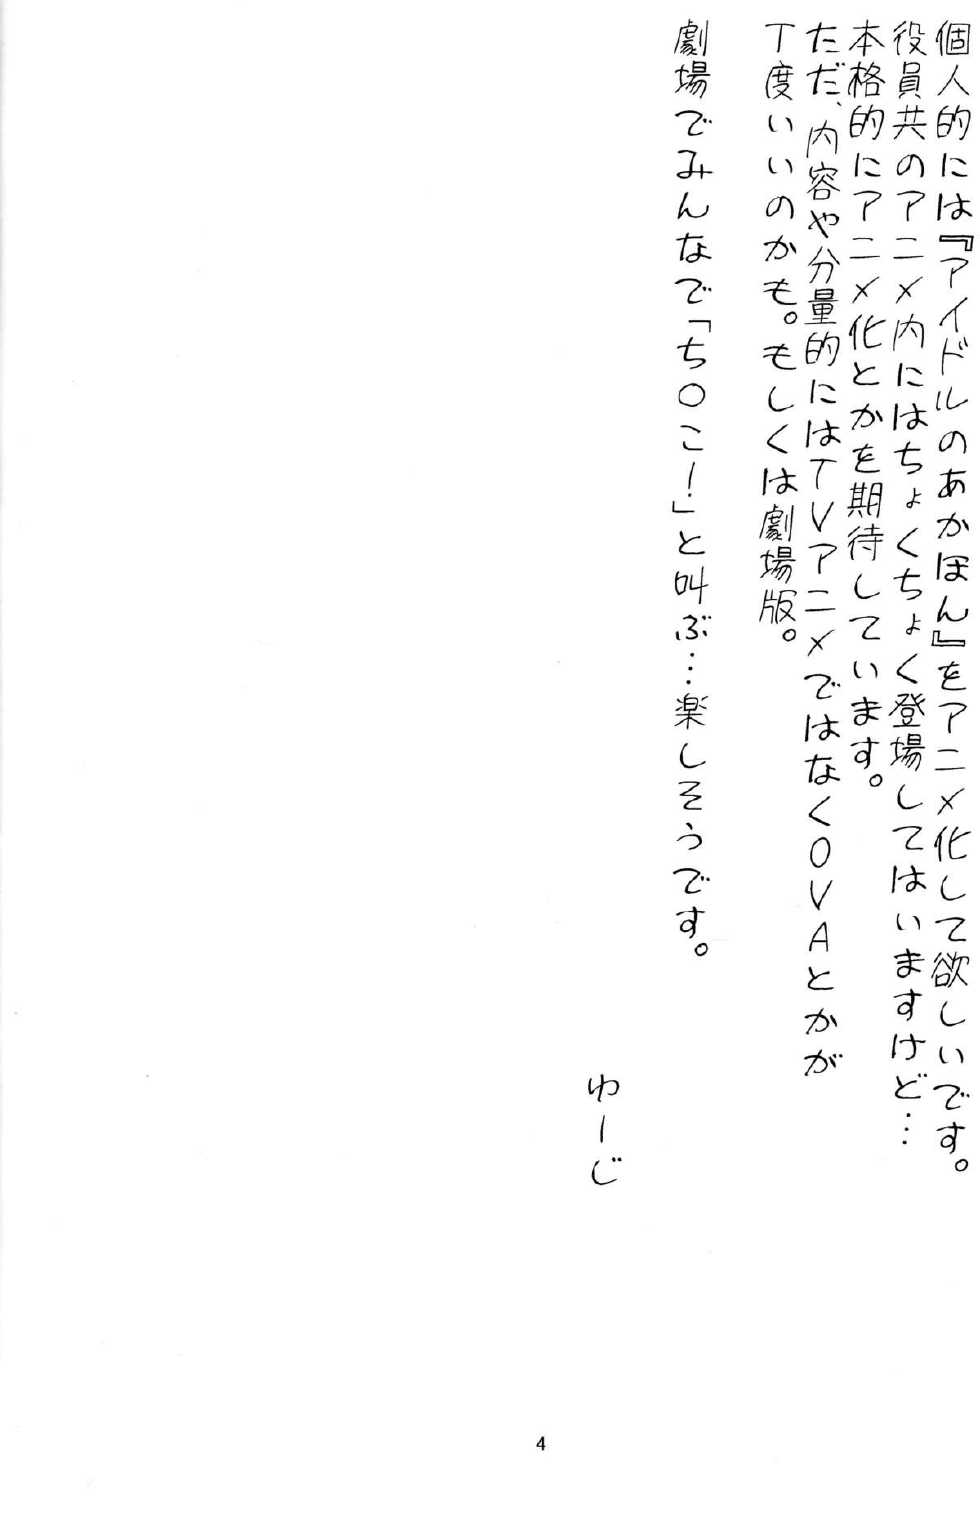 個人的には『アイドルのあかほん』をアニメ化して欲しいです。
役員共のアニメ内にはちょくちょく登場してはいますけど…
本格的にアニメ化とかを期待しています。
ただ、内容や分量的にはTVアニメではなくOVAとかが
丁度いいのかも。もしくは劇場版。
劇場でみんなで「ち〇こ！」と叫ぶ…楽しそうです。
ゆーじ
4